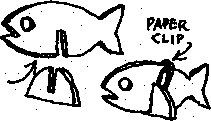 PAPER
CLIP